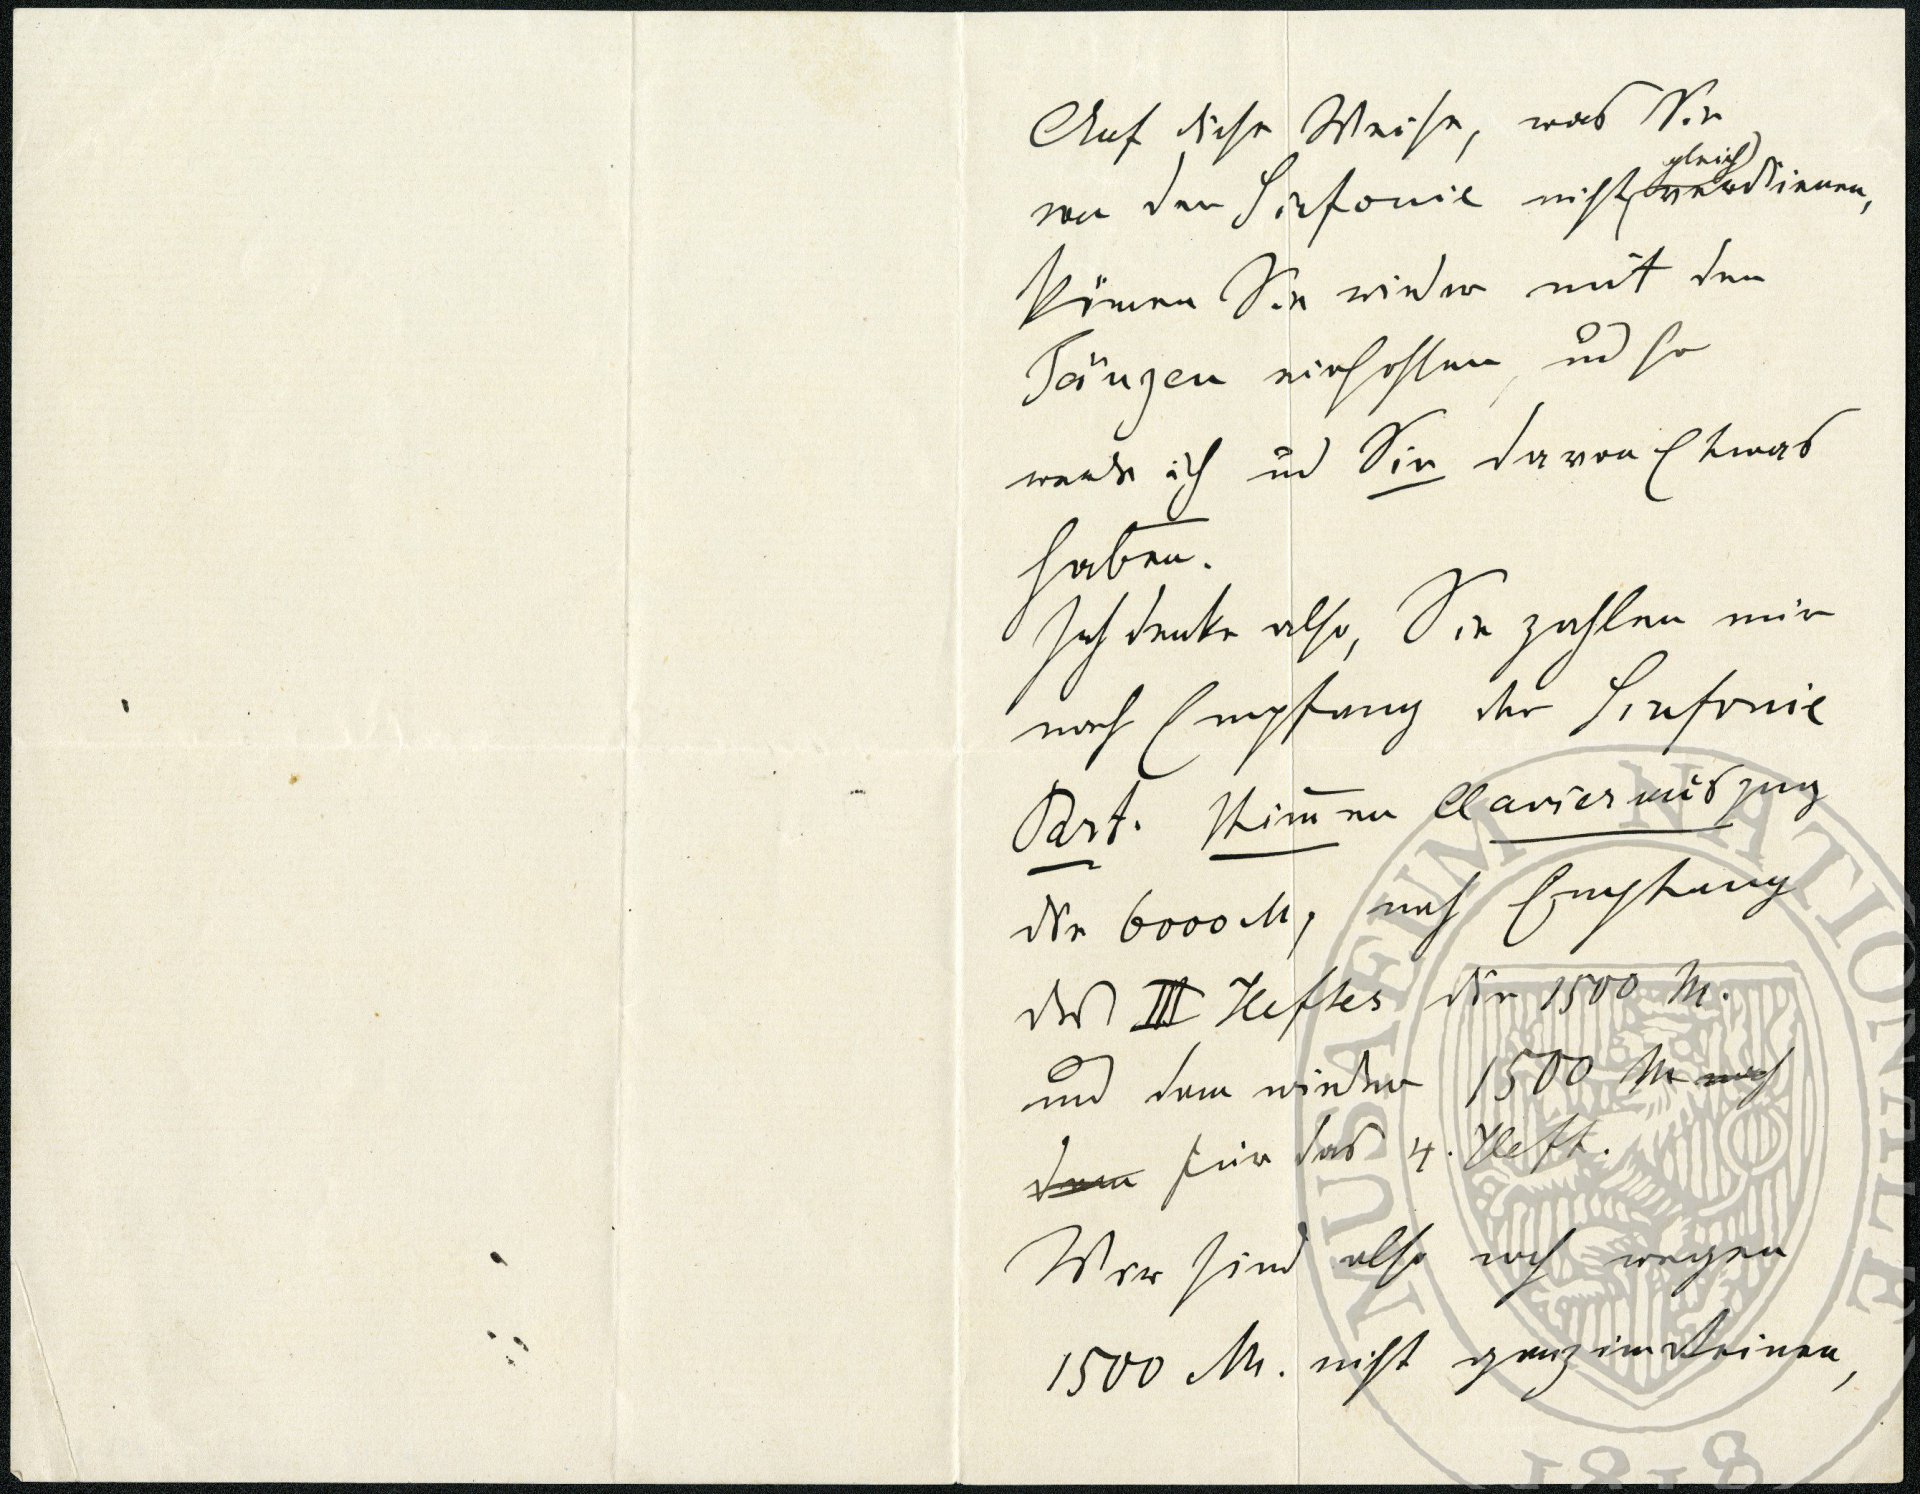 Auf diese Weise, was Sie
von der Sinfonie nicht gleich verdienen,
können Sie wieder mit den
Tänzen einhohlen, und so
werde ich und Sie davon Etwas
haben.
Ich denke also, Sie zahlen mir
nach Empfang der Sinfonie
Part. Stim̄en Clavierauszug
die 6000 M, nach Empfang
des III Heftes die 1500 M.
und dann wieder 1500 M nach
dem für das 4. Heft.
Wir sind also noch wegen
1500 M. nicht ganz im Reinen,
MUSAEUM NATIONALE
1818